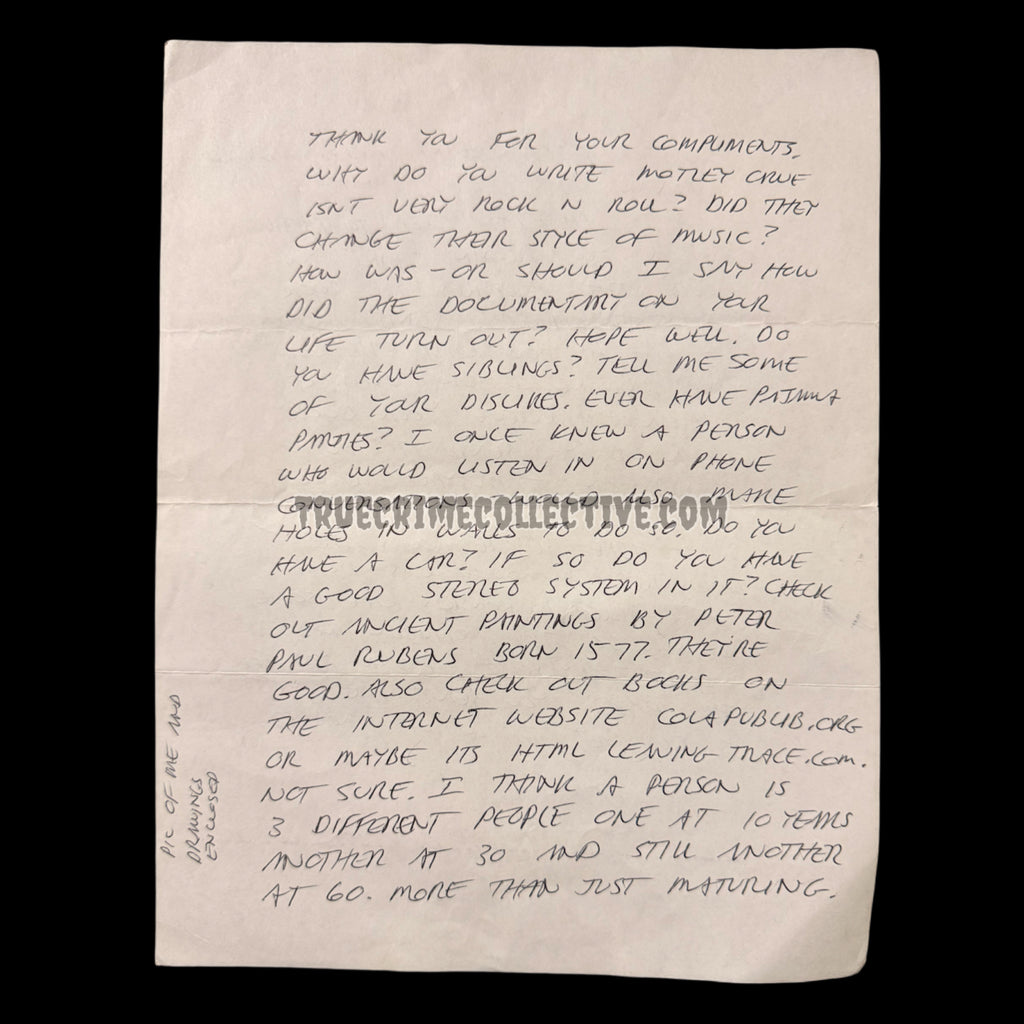 THANK YOU FOR YOUR COMPLIMENTS.
WHY DO YOU WRITE MOTLEY CRUE
ISNT VERY ROCK N ROLL? DID THEY
CHANGE THEIR STYLE OF MUSIC?
HOW WAS - OR SHOULD I SAY HOW
DID THE DOCUMENTARY ON YOUR
LIFE TURN OUT? HOPE WELL. DO
YOU HAVE SIBLINGS? TELL ME SOME
OF YOUR DISLIKES. EVER HAVE PAJAMA
PARTIES? I ONCE KNEW A PERSON
WHO WOULD LISTEN IN ON PHONE
CONVERSATIONS WOULD ALSO MAKE
TRUECRIMECOLLECTIVE.COM
HOLES IN WALLS TO DO SO. DO YOU
HAVE A CAR? IF SO DO YOU HAVE
A GOOD STEREO SYSTEM IN IT? CHECK
OUT ANCIENT PAINTINGS BY PETER
PAUL RUBENS BORN 1577. THEY'RE
GOOD. ALSO CHECK OUT BOOKS ON
THE INTERNET WEBSITE COLAPUBLIB.ORG
OR MAYBE ITS HTML LEAVING-TRACE.COM.
NOT SURE. I THINK A PERSON IS
3 DIFFERENT PEOPLE ONE AT 10 YEARS
ANOTHER AT 30 AND STILL ANOTHER
AT 60. MORE THAN JUST MATURING.
PIC OF ME AND
DRAWINGS
ENCLOSED